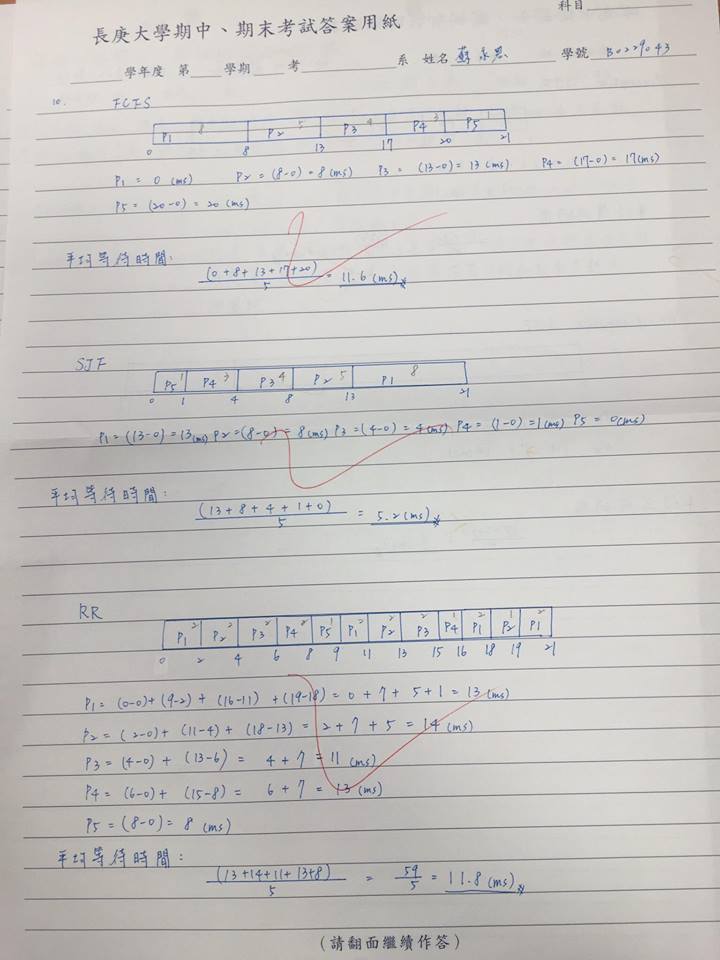 科目
長庚大學期中、期末考試答案用紙
學年度 第 學期 考 系 姓名 蘇永恩 學號 B0229043
10. FCFS
P1 8 P2 5 P3 4 P4 3 P5 1
0 8 13 17 20 21
P1 = 0 (ms) P2 = (8-0) = 8 (ms) P3 = (13-0) = 13 (ms) P4 = (17-0) = 17 (ms)
P5 = (20-0) = 20 (ms)
平均等待時間:
(0+8+13+17+20)/5 = 11.6 (ms)
SJF
P5 1 P4 3 P3 4 P2 5 P1 8
0 1 4 8 13 21
P1 = (13-0) = 13 (ms) P2 = (8-0) = 8 (ms) P3 = (4-0) = 4 (ms) P4 = (1-0) = 1 (ms) P5 = 0 (ms)
平均等待時間:
(13+8+4+1+0)/5 = 5.2 (ms)
RR
P1 2 P2 2 P3 2 P4 2 P5 1 P1 2 P2 2 P3 2 P4 1 P1 2 P2 1 P1 2
0 2 4 6 8 9 11 13 15 16 18 19 21
P1 = (0-0) + (9-2) + (16-11) + (19-18) = 0 + 7 + 5 + 1 = 13 (ms)
P2 = (2-0) + (11-4) + (18-13) = 2 + 7 + 5 = 14 (ms)
P3 = (4-0) + (13-6) = 4 + 7 = 11 (ms)
P4 = (6-0) + (15-8) = 6 + 7 = 13 (ms)
P5 = (8-0) = 8 (ms)
平均等待時間:
(13+14+11+13+8)/5 = 59/5 = 11.8 (ms)
(請翻面繼續作答)